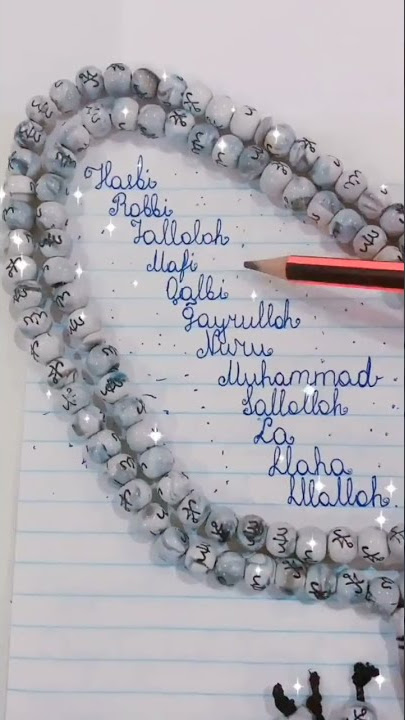 Hasbi
Robbi
Jalloloh
Mafi
Qalbi
Gʻayrulloh
Nuru
Muhammad
Sallolloh
La
Ilaha
Illalloh